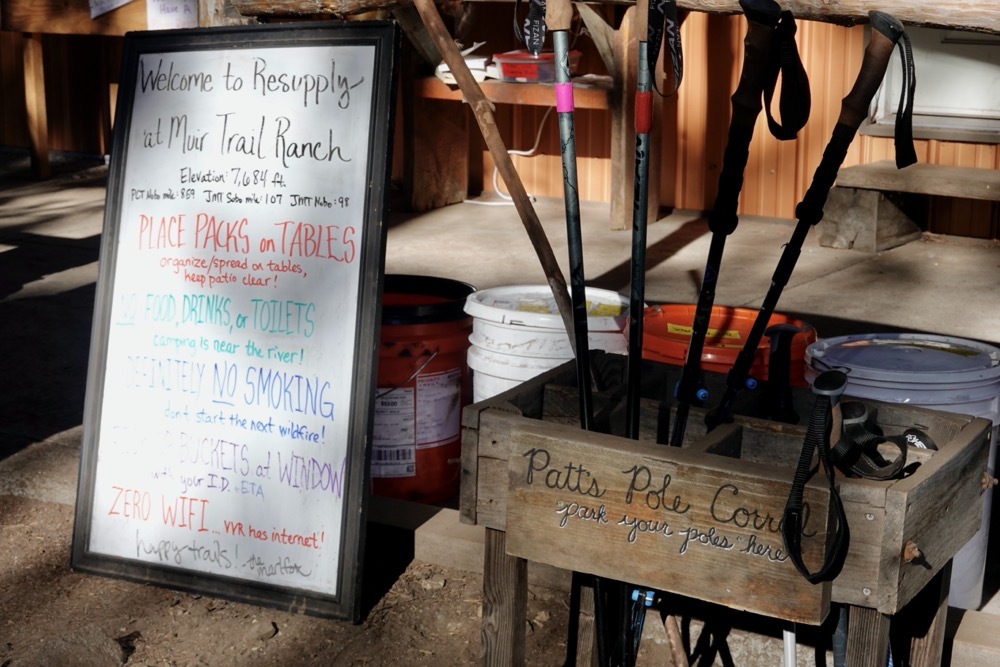 Welcome to Resupply
at Muir Trail Ranch
Elevation: 7,684 ft.
PCT Nobo mile: 869 JMT Sobo mile: 107 JMT Nobo: 98
PLACE PACKS on TABLES
organize/spread on tables,
keep patio clear!
NO FOOD, DRINKS, or TOILETS
camping is near the river!
DEFINITELY NO SMOKING
don't start the next wildfire!
BUCKETS at WINDOW
with your I.D. + ETA
ZERO WIFI... VVR has internet!
happy trails! -the martfox
Patt's Pole Corral
park your poles here